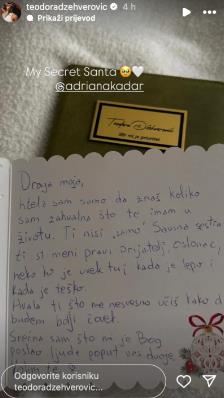 teodoradzehverovic 4 h
Prikaži prijevod
My Secret Santa 🥹🤍
@adrianakadar
Draga moja,
htela sam samo da znaš koliko
sam zahvalna što te imam u
životu. Ti nisi „samo" sestra
ti si meni pravi prijatelj, oslonac,
neko ko je uvek tu kada je lepo i
kada je teško.
Hvala ti što me nesvesno učiš kako d
budem bolji čovek.
Srećna sam što mi je Bog
poslao ljude poput vas dvoje
Volim te
Odgovorite korisniku
teodoradzehverovic...